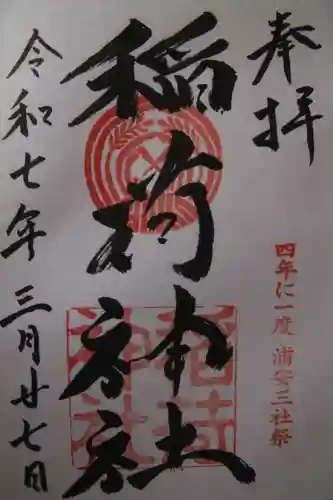 奉拝
四年に一度 浦安三社祭
稲荷神社
稲荷神社
令和七年三月廿七日